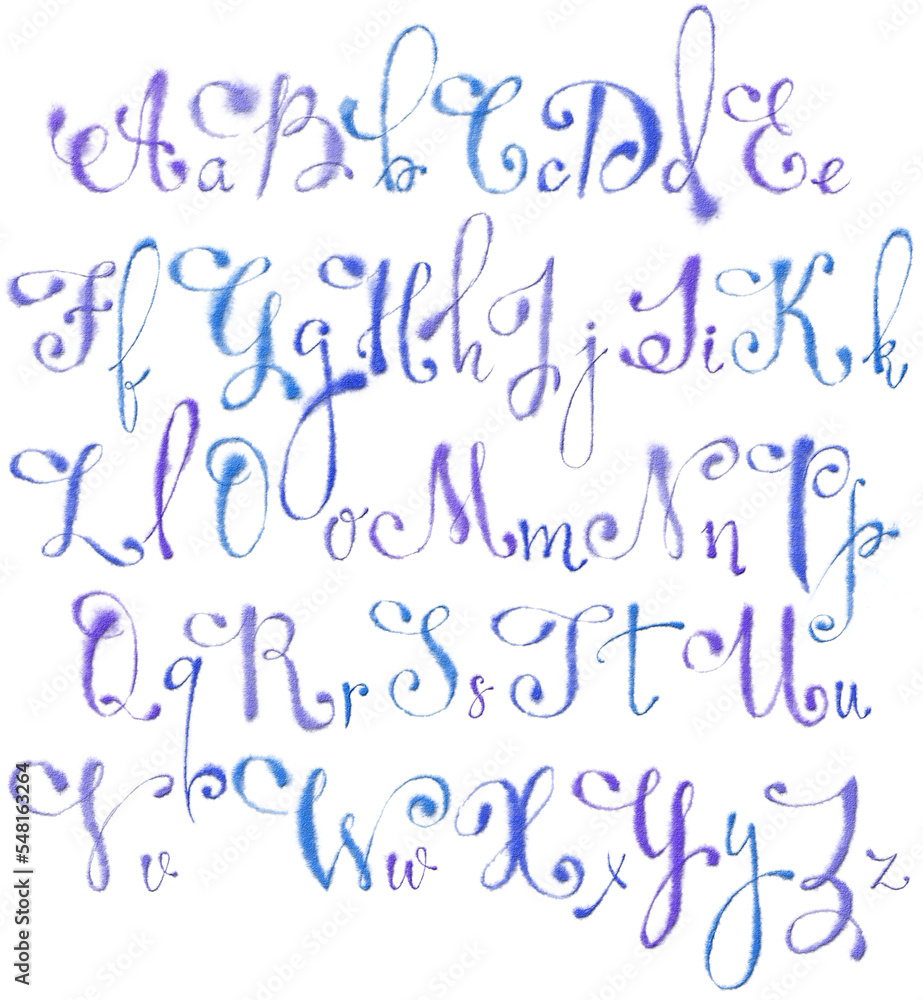 AaBbCcDdEe
FfGgHhJjIiKk
LlOoMmNnPp
QqRrSsTtUu
VvWwXxYyZz
Adobe Stock | #548163264